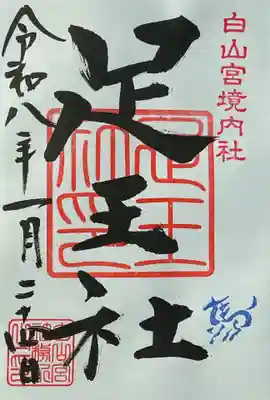 白山宮境内社
足王社
令和八年一月二十四日